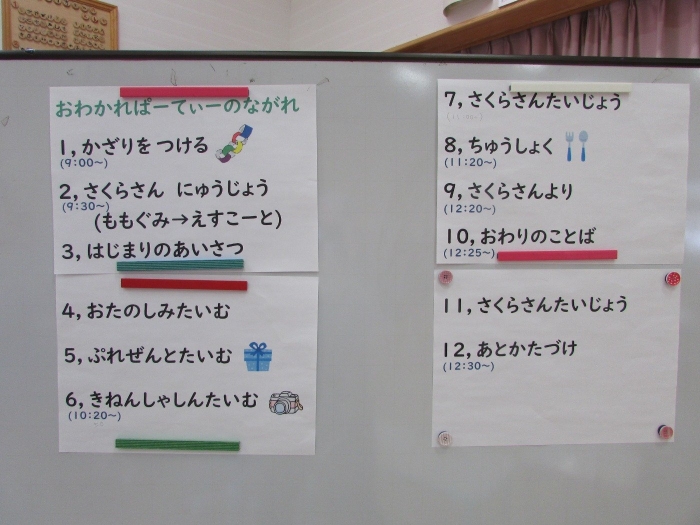 おわかれぱーてぃーのながれ
1, かざりを つける
(9:00~)
2, さくらさん にゅうじょう
(9:30~)
(ももぐみ→えすこーと)
3, はじまりのあいさつ
4, おたのしみたいむ
5, ぷれぜんとたいむ
6, きねんしゃしんたいむ
(10:20~)
7, さくらさんたいじょう
8, ちゅうしょく
(11:20~)
9, さくらさんより
(12:20~)
10, おわりのことば
(12:25~)
11, さくらさんたいじょう
12, あとかたづけ
(12:30~)